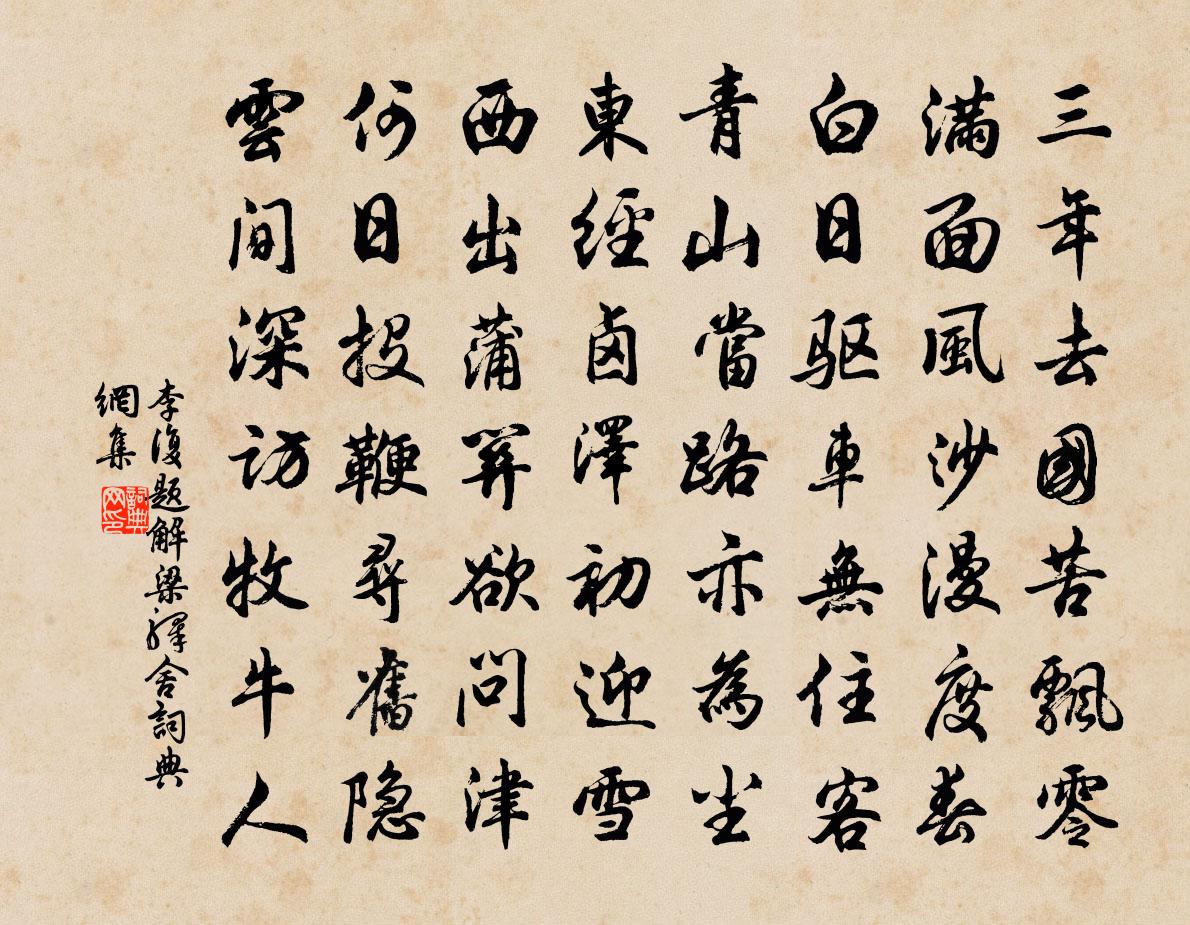 三年去國苦飄零
滿面風沙漫度春
白日驱車無住客
青山當路亦為尘
東經卤澤初迎雪
西出蒲關欲問津
何日投鞭尋舊隐
雲間深訪牧牛人
李復題解梁驛舍詞典
網集
詞典
网印